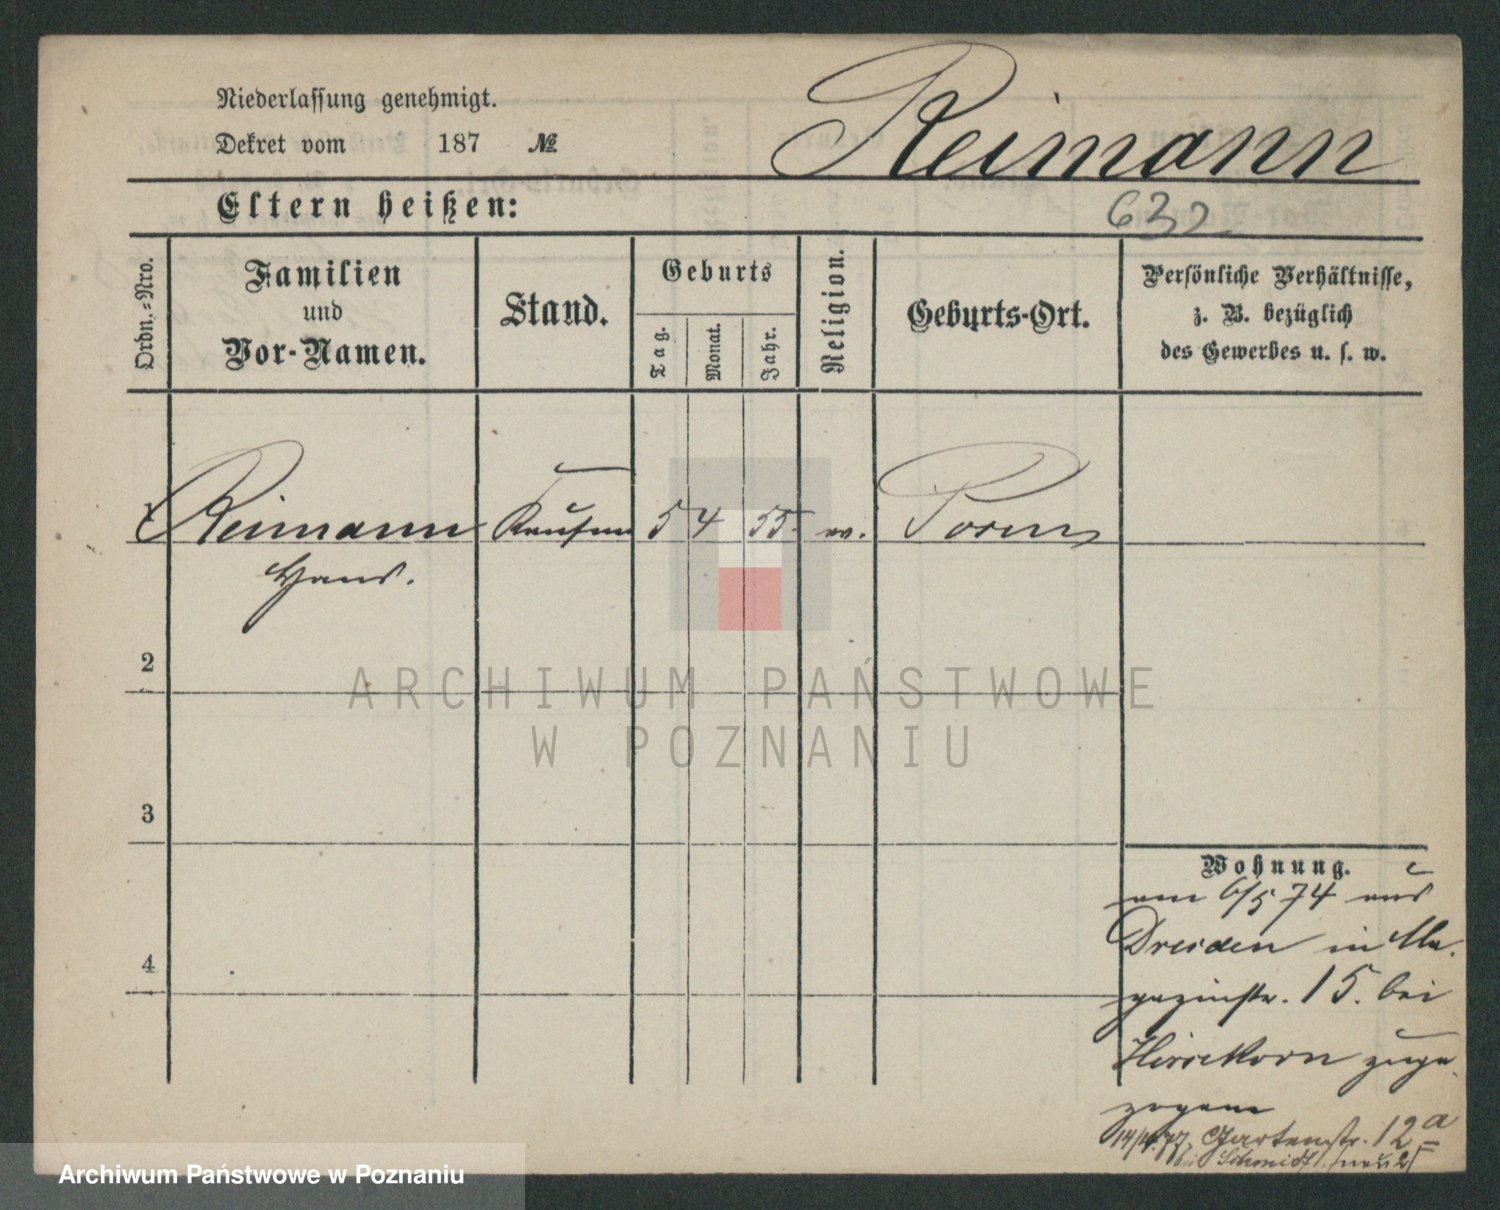 Niederlassung genehmigt.
Dekret vom 187 №
Reimann
Eltern heißen:
632
Ordn.-Nro.
Familien
und
Vor-Namen.
Stand.
Geburts
Tag.
Monat.
Jahr.
Religion.
Geburts-Ort.
Persönliche Verhältnisse,
z. B. bezüglich
des Gewerbes u. s. w.
1 Reimann Kaufm 5 4 55. ev. Posen
Hans.
2
ARCHIWUM PAŃSTWOWE
W POZNANIU
3
Wohnung.
am 6/5 74 aus
Dresden in Ma.
gazinstr. 15. bei
Hirsekorn zuge.
zogen
14/4.77. Gartenstr. 12a
bei Schmidt
4
Archiwum Państwowe w Poznaniu